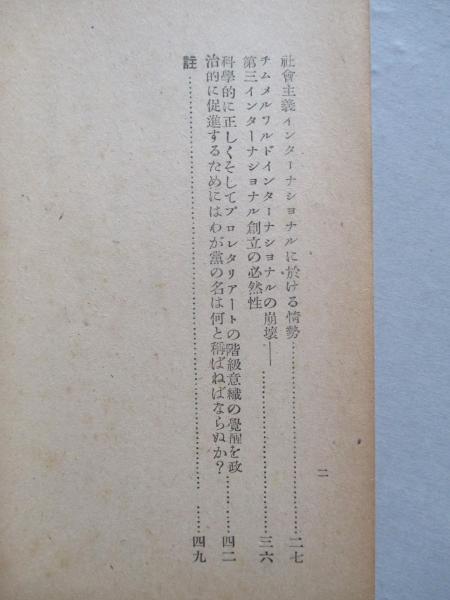 社會主義インターナショナルに於ける情勢……………………二七
チムメルワルドインターナショナルの崩壞——
第三インターナショナル創立の必然性……………………三六
科學的に正しくそしてプロレタリアートの階級意識の覺醒を政
治的に促進するためにはわが黨の名は何と稱ばねばならぬか？……四二
註……………………………………………四九
二